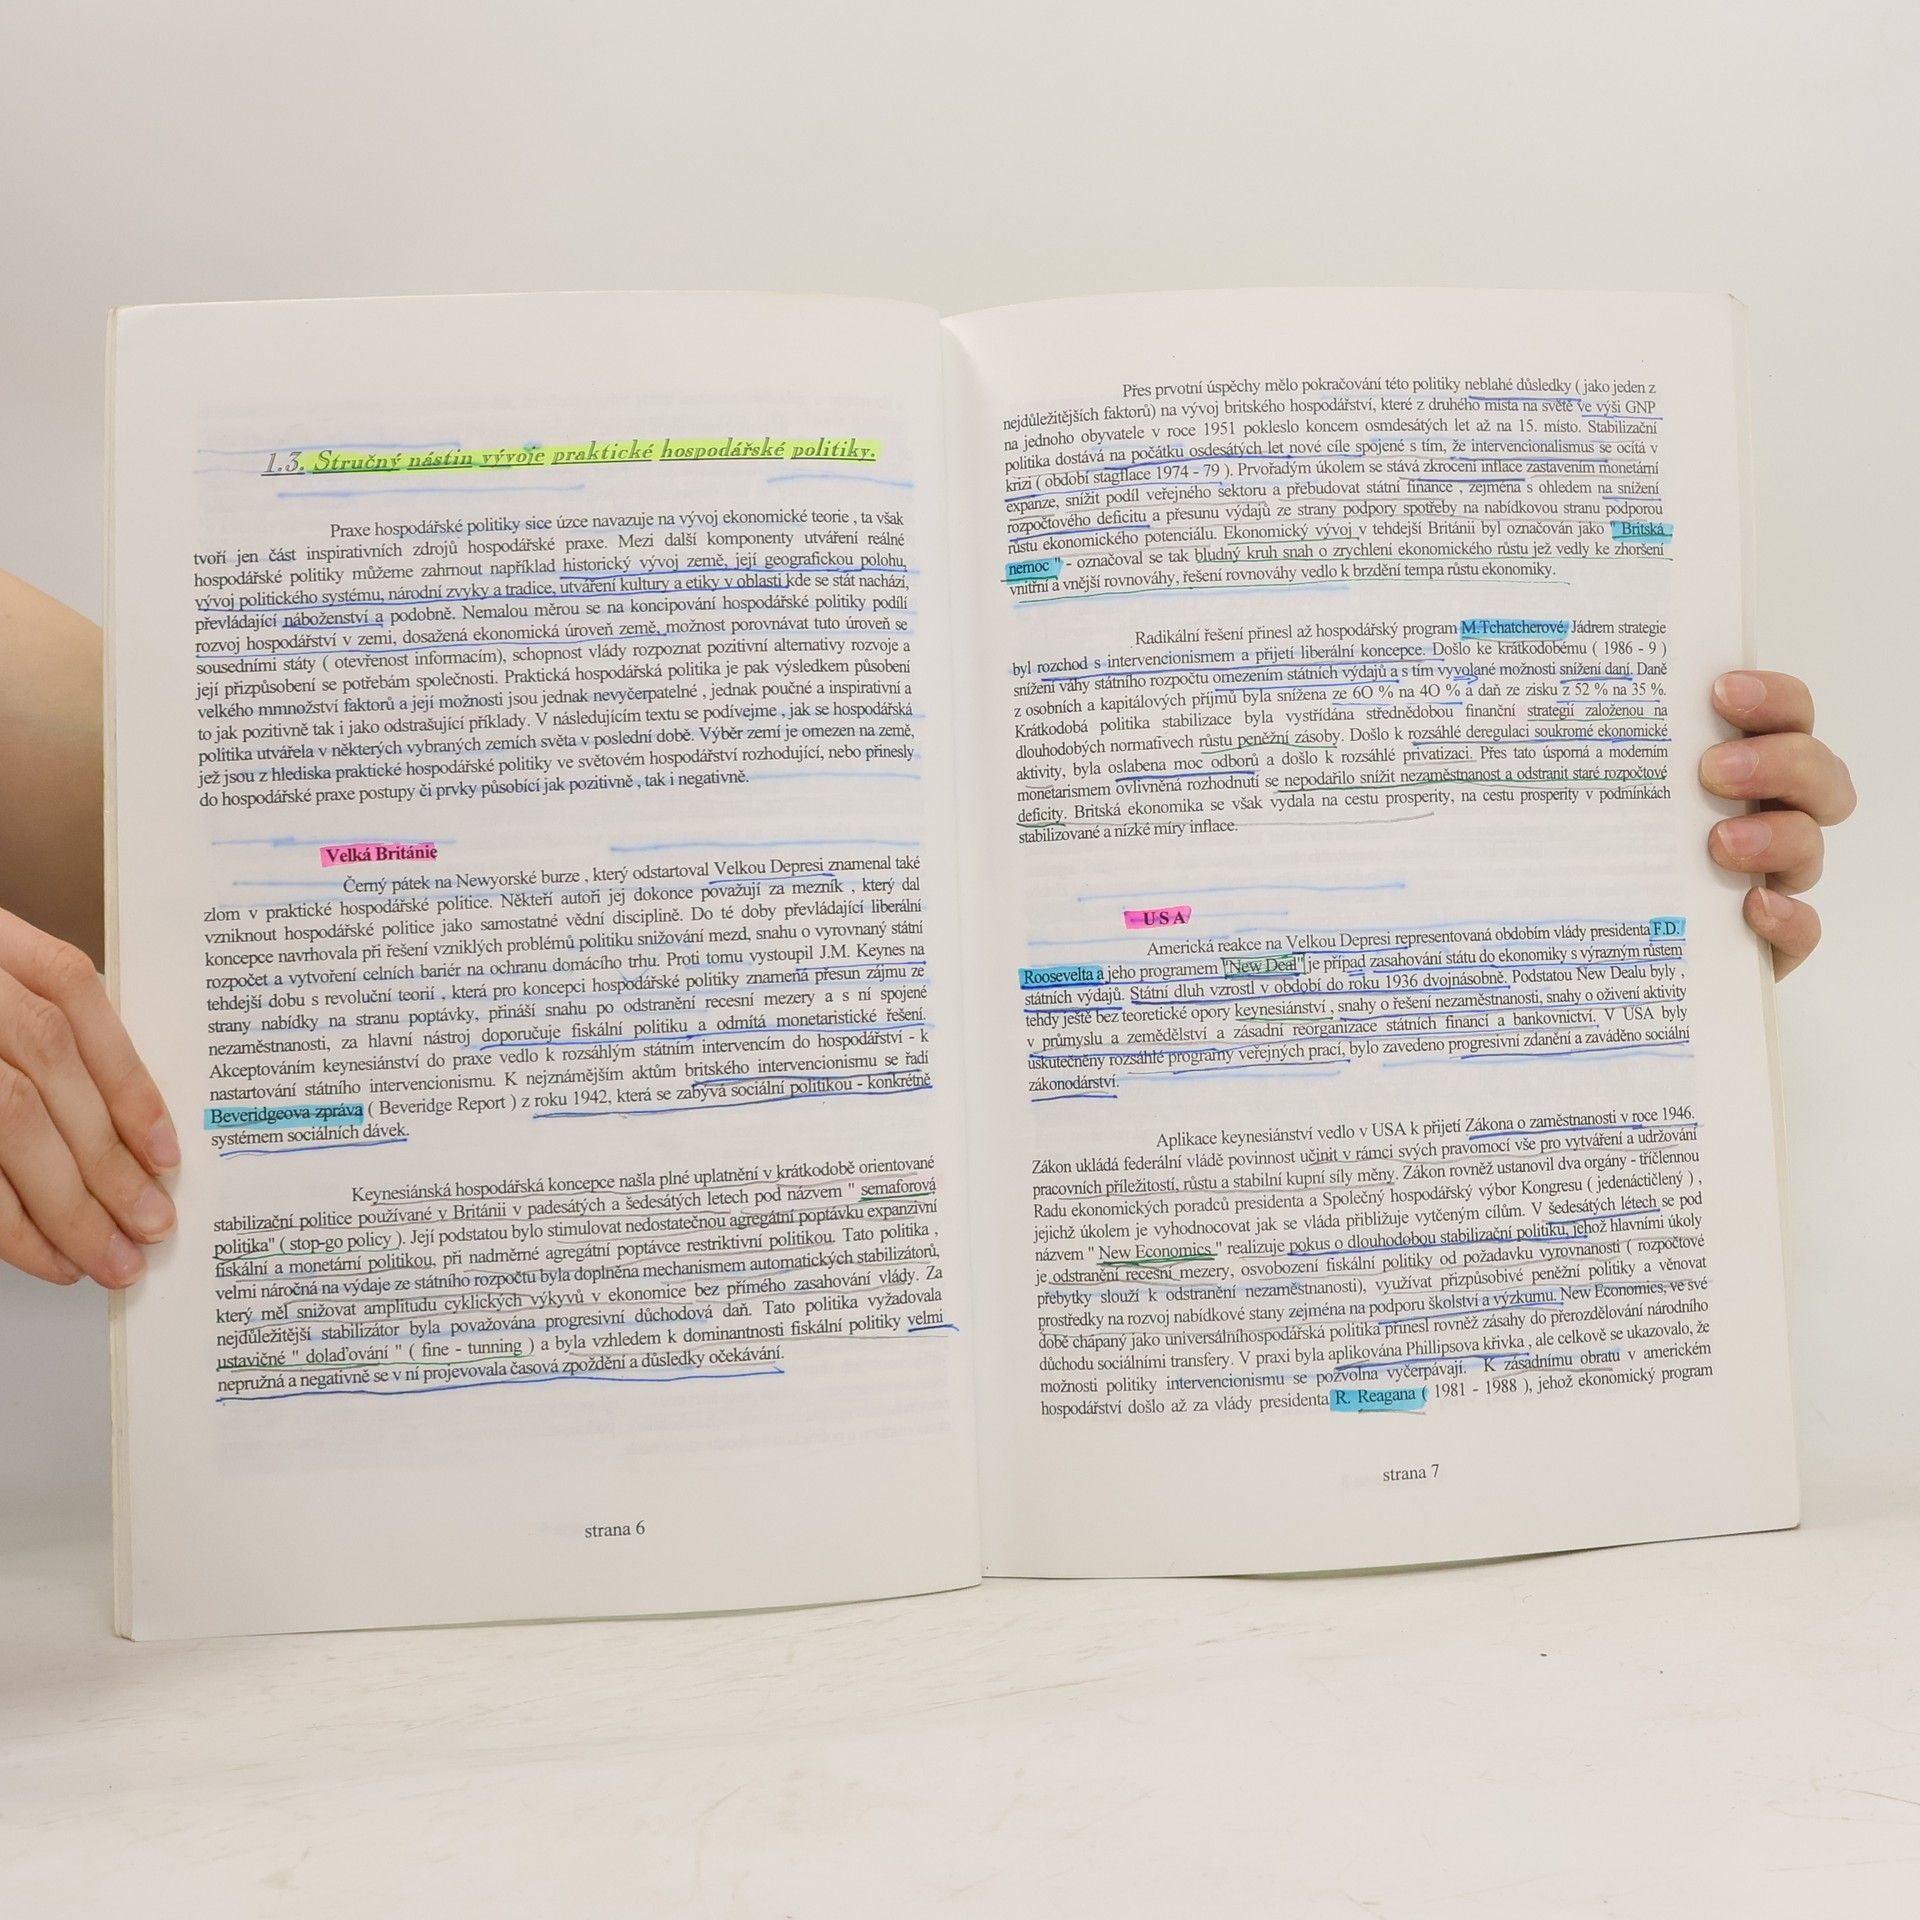 1.3. Stručný nástin vývoje praktické hospodářské politiky.
Praxe hospodářské politiky sice úzce navazuje na vývoj ekonomické teorie , ta však
tvoří jen část inspirativních zdrojů hospodářské praxe. Mezi další komponenty utváření reálné
hospodářské politiky můžeme zahrnout například historický vývoj země, její geografickou polohu,
vývoj politického systému, národní zvyky a tradice, utváření kultury a etiky v oblasti kde se stát nachází,
převládající náboženství a podobně. Nemalou měrou se na koncipování hospodářské politiky podílí
rozvoj hospodářství v zemi, dosažená ekonomická úroveň země, možnost porovnávat tuto úroveň se
sousedními státy ( otevřenost informacím), schopnost vlády rozpoznat pozitivní alternativy rozvoje a
její přizpůsobení se potřebám společnosti. Praktická hospodářská politika je pak výsledkem působení
velkého mmnožství faktorů a její možnosti jsou jednak nevyčerpatelné , jednak poučné a inspirativní a
to jak pozitivně tak i jako odstrašující příklady. V následujícím textu se podívejme , jak se hospodářská
politika utvářela v některých vybraných zemích světa v poslední době. Výběr zemí je omezen na země,
jež jsou z hlediska praktické hospodářské politiky ve světovém hospodářství rozhodující, nebo přinesly
do hospodářské praxe postupy či prvky působící jak pozitivně , tak i negativně.
Velká Británie
Černý pátek na Newyorské burze , který odstartoval Velkou Depresi znamenal také
zlom v praktické hospodářské politice. Někteří autoři jej dokonce považují za mezník , který dal
vzniknout hospodářské politice jako samostatné vědní disciplině. Do té doby převládající liberální
koncepce navrhovala při řešení vzniklých problémů politiku snižování mezd, snahu o vyrovnaný státní
rozpočet a vytvoření celních bariér na ochranu domácího trhu. Proti tomu vystoupil J.M. Keynes na
tehdejší dobu s revoluční teorií , která pro koncepci hospodářské politiky znamená přesun zájmu ze
strany nabídky na stranu poptávky, přináší snahu po odstranění recesní mezery a s ní spojené
nezaměstnanosti, za hlavní nástroj doporučuje fiskální politiku a odmítá monetaristické řešení.
Akceptováním keynesiánství do praxe vedlo k rozsáhlým státním intervencím do hospodářství - k
nastartování státního intervencionismu. K nejznámějším aktům britského intervencionismu se řadí
Beveridgeova zpráva ( Beveridge Report ) z roku 1942, která se zabývá sociální politikou - konkrétně
systémem sociálních dávek.
Keynesiánská hospodářská koncepce našla plné uplatnění v krátkodobě orientované
stabilizační politice používané v Británii v padesátých a šedesátých letech pod názvem " semaforová
politika" ( stop-go policy ). Její podstatou bylo stimulovat nedostatečnou agregátní poptávku expanzivní
fiskální a monetární politikou, při nadměrné agregátní poptávce restriktivní politikou. Tato politika ,
velmi náročná na výdaje ze státního rozpočtu byla doplněna mechanismem automatických stabilizátorů,
který měl snižovat amplitudu cyklických výkyvů v ekonomice bez přímého zasahování vlády. Za
nejdůležitější stabilizátor byla považována progresivní důchodová daň. Tato politika vyžadovala
ustavičné " dolaďování " ( fine - tunning ) a byla vzhledem k dominantnosti fiskální politiky velmi
nepružná a negativně se v ní projevovala časová zpoždění a důsledky očekávání.
strana 6
Přes prvotní úspěchy mělo pokračování této politiky neblahé důsledky ( jako jeden z
nejdůležitějších faktorů) na vývoj britského hospodářství, které z druhého místa na světě ve výši GNP
na jednoho obyvatele v roce 1951 pokleslo koncem osmdesátých let až na 15. místo. Stabilizační
politika dostává na počátku osdesátých let nové cíle spojené s tím, že intervencionalismus se ocitá v
krizi ( období stagflace 1974 - 79 ). Prvořadým úkolem se stává zkrocení inflace zastavením monetární
expanze, snížit podíl veřejného sektoru a přebudovat státní finance , zejména s ohledem na snížení
rozpočtového deficitu a přesunu výdajů ze strany podpory spotřeby na nabídkovou stranu podporou
růstu ekonomického potenciálu. Ekonomický vývoj v tehdejší Británii byl označován jako " Britská
nemoc " - označoval se tak bludný kruh snah o zrychlení ekonomického růstu jež vedly ke zhoršení
vnitřní a vnější rovnováhy, řešení rovnováhy vedlo k brzdění tempa růstu ekonomiky.
Radikální řešení přinesl až hospodářský program M.Tchatcherové. Jádrem strategie
byl rozchod s intervencionismem a přijetí liberální koncepce. Došlo ke krátkodobému ( 1986 - 9 )
snížení váhy státního rozpočtu omezením státních výdajů a s tím vyvolané možnosti snížení daní. Daně
z osobních a kapitálových příjmů byla snížena ze 6O % na 4O % a daň ze zisku z 52 % na 35 %.
Krátkodobá politika stabilizace byla vystřídána střednědobou finanční strategií založenou na
dlouhodobých normativech růstu peněžní zásoby. Došlo k rozsáhlé deregulaci soukromé ekonomické
aktivity, byla oslabena moc odborů a došlo k rozsáhlé privatizaci. Přes tato úsporná a moderním
monetarismem ovlivněná rozhodnutí se nepodařilo snížit nezaměstnanost a odstranit staré rozpočtové
deficity. Britská ekonomika se však vydala na cestu prosperity, na cestu prosperity v podmínkách
stabilizované a nízké míry inflace.
U S A
Americká reakce na Velkou Depresi representovaná obdobím vlády presidenta F.D.
Roosevelta a jeho programem "New Deal" je případ zasahování státu do ekonomiky s výrazným růstem
státních výdajů. Státní dluh vzrostl v období do roku 1936 dvojnásobně. Podstatou New Dealu byly ,
tehdy ještě bez teoretické opory keynesiánství , snahy o řešení nezaměstnanosti, snahy o oživení aktivity
v průmyslu a zemědělství a zásadní reorganizace státních financí a bankovnictví. V USA byly
uskutečněny rozsáhlé programy veřejných prací, bylo zavedeno progresivní zdanění a zaváděno sociální
zákonodárství.
Aplikace keynesiánství vedlo v USA k přijetí Zákona o zaměstnanosti v roce 1946.
Zákon ukládá federální vládě povinnost učinit v rámci svých pravomocí vše pro vytváření a udržování
pracovních příležitostí, růstu a stabilní kupní síly měny. Zákon rovněž ustanovil dva orgány - tříčlennou
Radu ekonomických poradců presidenta a Společný hospodářský výbor Kongresu ( jedenáctičlený ) ,
jejichž úkolem je vyhodnocovat jak se vláda přibližuje vytčeným cílům. V šedesátých létech se pod
názvem " New Economics " realizuje pokus o dlouhodobou stabilizační politiku, jehož hlavními úkoly
je odstranění recesní mezery, osvobození fiskální politiky od požadavku vyrovnanosti ( rozpočtové
přebytky slouží k odstranění nezaměstnanosti), využívat přizpůsobivé peněžní politiky a věnovat
prostředky na rozvoj nabídkové stany zejména na podporu školství a výzkumu. New Economics, ve své
době chápaný jako universálníhospodářská politika přinesl rovněž zásahy do přerozdělování národního
důchodu sociálními transfery. V praxi byla aplikována Phillipsova křivka , ale celkově se ukazovalo, že
možnosti politiky intervencionismu se pozvolna vyčerpávají. K zásadnímu obratu v americkém
hospodářství došlo až za vlády presidenta R. Reagana ( 1981 - 1988 ), jehož ekonomický program
strana 7